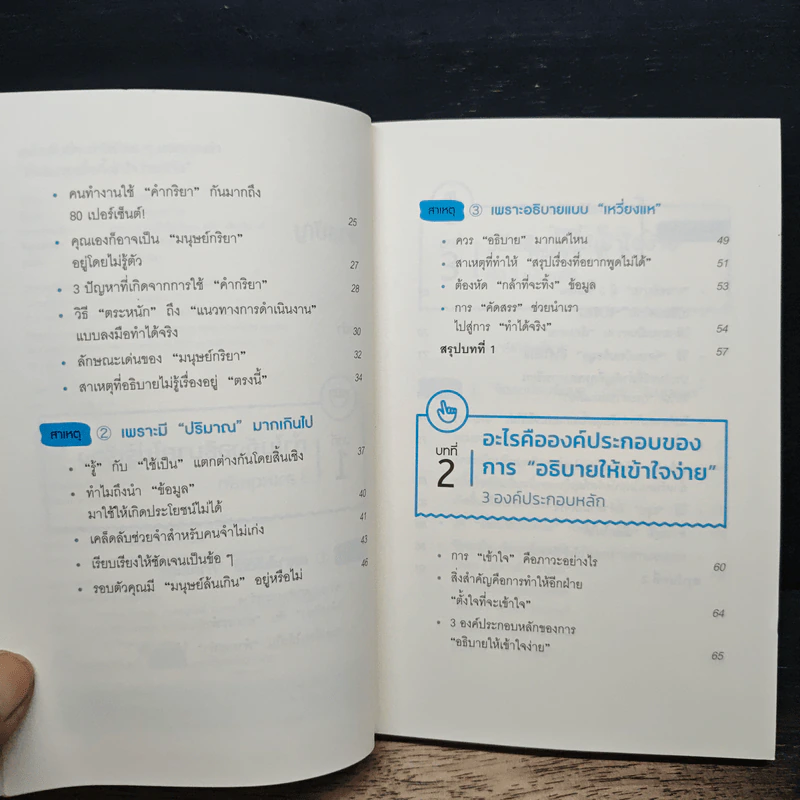 • คนทำงานใช้ “คำกริยา” กันมากถึง
80 เปอร์เซ็นต์! 25
• คุณเองก็อาจเป็น “มนุษย์กริยา”
อยู่โดยไม่รู้ตัว 27
• 3 ปัญหาที่เกิดจากการใช้ “คำกริยา” 28
• วิธี “ตระหนัก” ถึง “แนวทางการดำเนินงาน”
แบบลงมือทำได้จริง 30
• ลักษณะเด่นของ “มนุษย์กริยา” 32
• สาเหตุที่อธิบายไม่รู้เรื่องอยู่ “ตรงนี้” 34
สาเหตุ ② เพราะมี “ปริมาณ” มากเกินไป
• “รู้” กับ “ใช้เป็น” แตกต่างกันโดยสิ้นเชิง 37
• ทำไมถึงนำ “ข้อมูล”
มาใช้ให้เกิดประโยชน์ไม่ได้ 40
• เคล็ดลับช่วยจำสำหรับคนจำไม่เก่ง 41
• เรียบเรียงให้ชัดเจนเป็นข้อ ๆ 43
• รอบตัวคุณมี “มนุษย์ล้นเกิน” อยู่หรือไม่ 46
สาเหตุ ③ เพราะอธิบายแบบ “เหวี่ยงแห”
• ควร “อธิบาย” มากแค่ไหน 49
• สาเหตุที่ทำให้ “สรุปเรื่องที่อยากพูดไม่ได้” 51
• ต้องหัด “กล้าที่จะทิ้ง” ข้อมูล 53
• การ “คัดสรร” ช่วยนำเรา
ไปสู่การ “ทำได้จริง” 54
สรุปบทที่ 1 57
บทที่ 2
อะไรคือองค์ประกอบของ
การ “อธิบายให้เข้าใจง่าย”
3 องค์ประกอบหลัก
• การ “เข้าใจ” คือภาวะอย่างไร 60
• สิ่งสำคัญคือการทำให้อีกฝ่าย
“ตั้งใจที่จะเข้าใจ” 64
• 3 องค์ประกอบหลักของการ
“อธิบายให้เข้าใจง่าย” 65